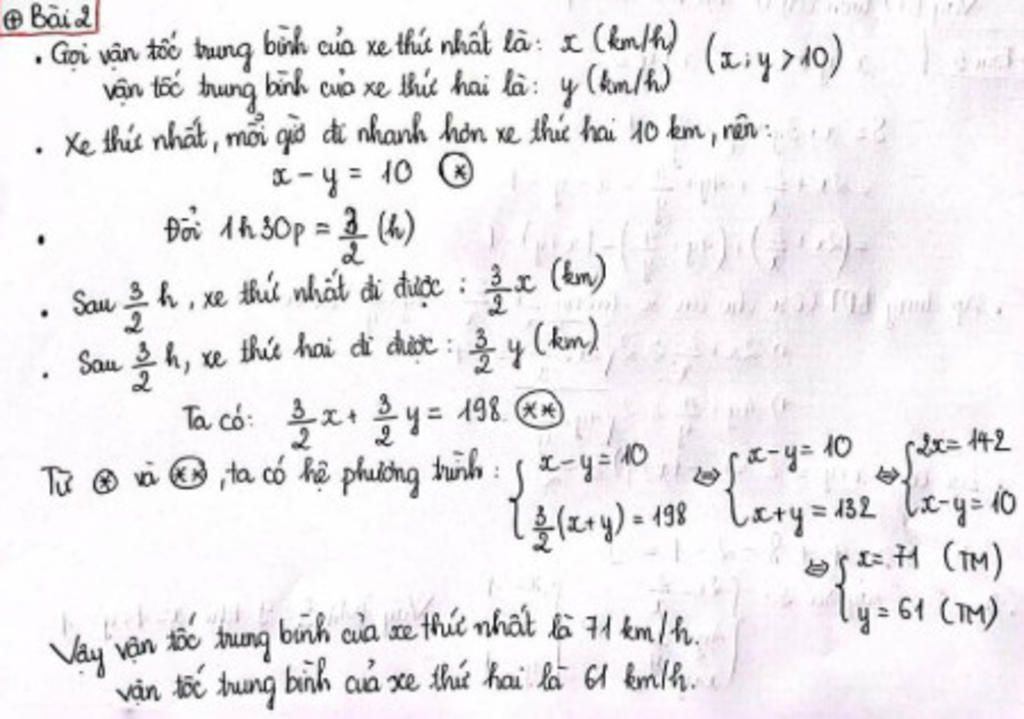 ⊕ Bài 2
. Gọi vận tốc trung bình của xe thứ nhất là: x (km/h) (x; y > 10)
vận tốc trung bình của xe thứ hai là: y (km/h)
. Xe thứ nhất, mỗi giờ đi nhanh hơn xe thứ hai 10 km, nên:
x - y = 10 (*)
. Đổi 1h30p = 3/2 (h)
. Sau 3/2 h, xe thứ nhất đi được : 3/2 x (km)
. Sau 3/2 h, xe thứ hai đi được : 3/2 y (km)
Ta có: 3/2 x + 3/2 y = 198 (**)
Từ (*) và (**), ta có hệ phương trình : { x - y = 10 ; 3/2 (x+y) = 198 ⇔ { x - y = 10 ; x + y = 132 ⇔ { 2x = 142 ; x - y = 10
⇔ { x = 71 (TM) ; y = 61 (TM)
Vậy vận tốc trung bình của xe thứ nhất là 71 km/h.
vận tốc trung bình của xe thứ hai là 61 km/h.